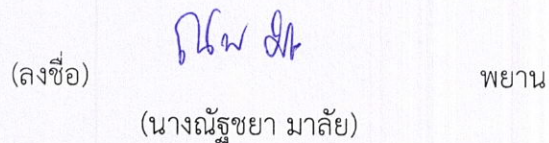 (ลงชื่อ) พยาน
(นางณัฐชยา มาลัย)